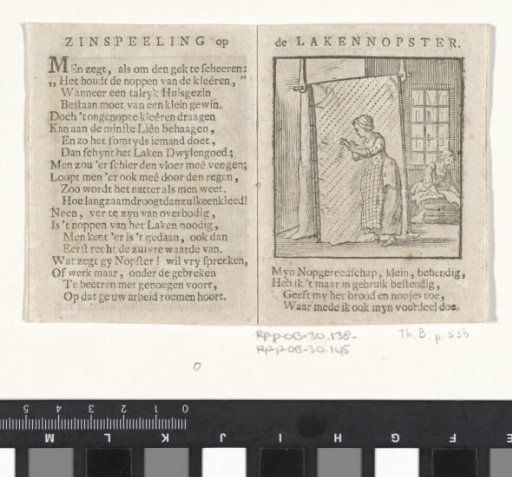 ZINSPEELING op
MEn zegt, als om den gek te scheeren:
„ Het houdt de noppen van de kleêren, “
Wanneer een talryk Huisgezin
Bestaan moet van een klein gewin.
Doch 't ongenopte kleêren draagen
Kan aan de minste Liên behaagen,
En zo het somtyds iemand doet,
Dan schynt het Laken Dwylengoed;
Men zou 'er schier den vloer meê veegen;
Loopt men 'er ook meê door den regen,
Zoo wordt het natter als men weet.
Hoe langzaam droogt dan zulk een kleed!
Neen, ver te zyn van overbodig,
Is 't noppen van het Laken noodig,
Men kent 'er is 't gedaan, ook dan
Eerst recht de zuivre waarde van.
Wat zegt gy Nopster! wil vry spreeken,
Of werk maar, onder de gebreken
Te beetren met genoegen voort,
Op dat ge uw arbeid roemen hoort.
de LAKENNOPSTER.
Myn Nopgereedschap, klein, behendig,
Heb ik 't maar in gebruik bestendig,
Geeft my het brood en nopjes toe,
Waar mede ik ook myn voordeel doe.
RP-P-OB-30.138-
RP-P-OB-30.145
Th. B. p. 536
0
5 4 3 2 1 0
M L K J I H G F E